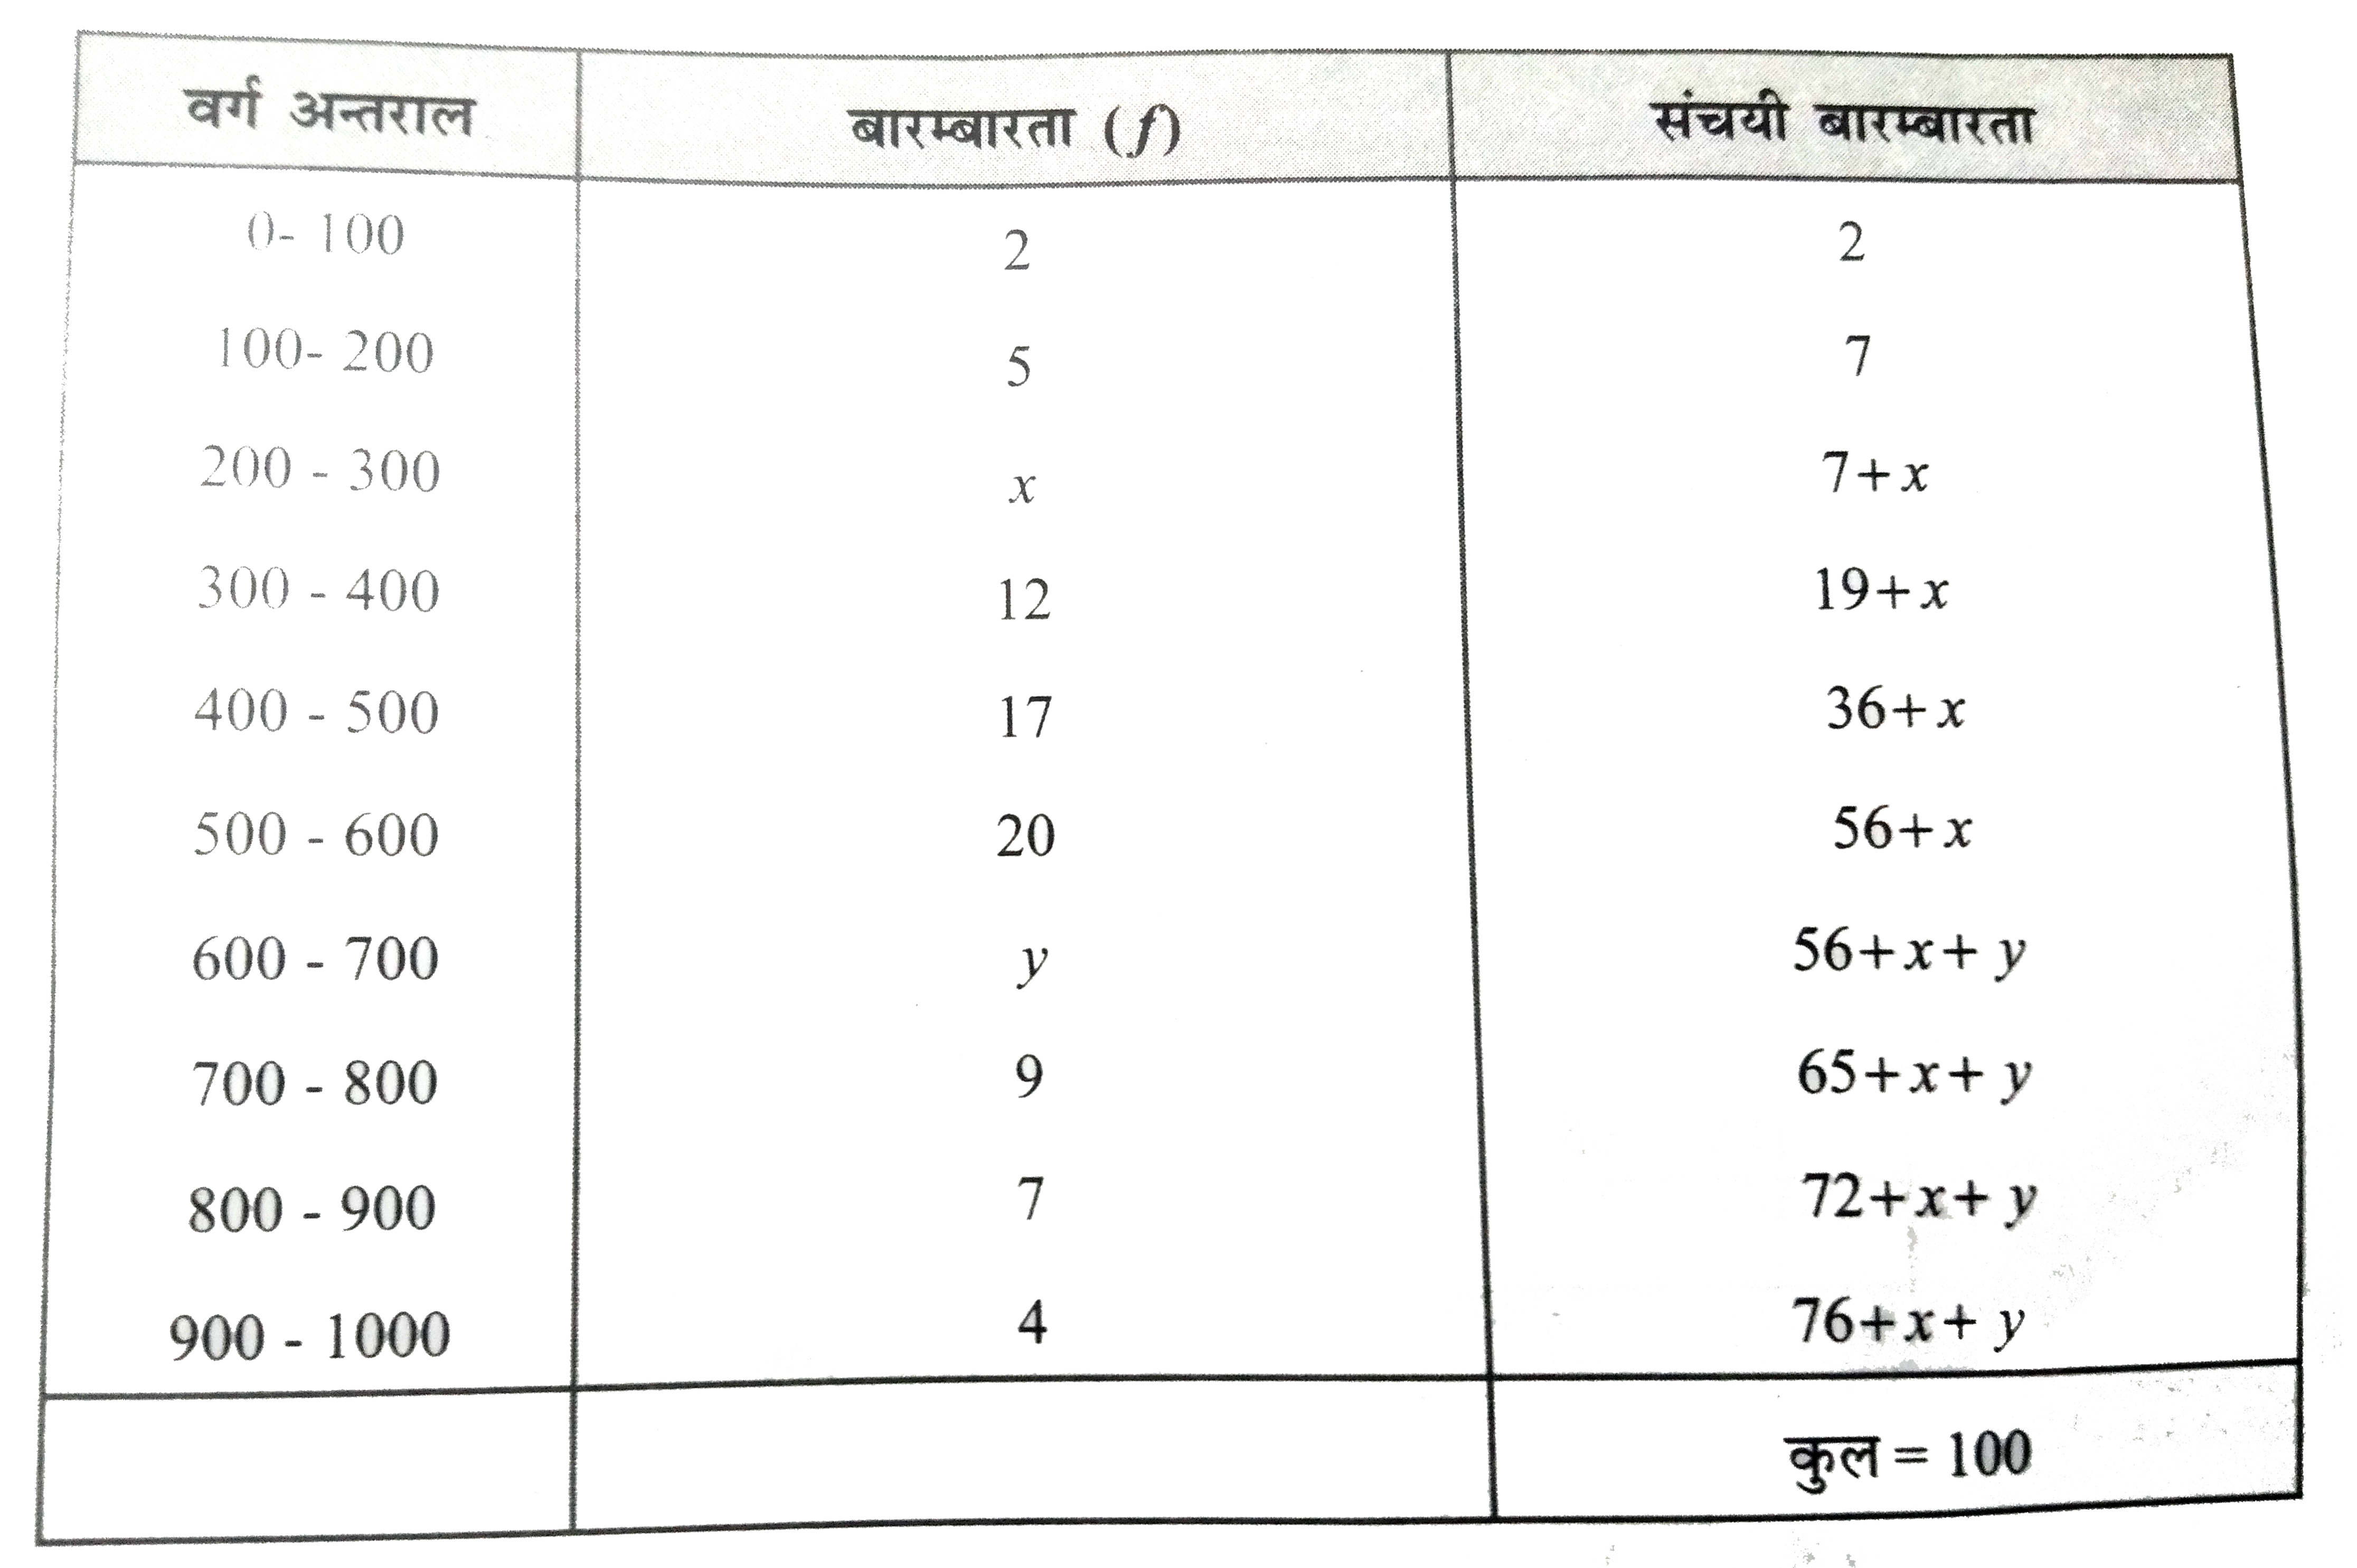 वर्ग अन्तराल बारम्बारता (f) संचयी बारम्बारता
0- 100 2 2
100- 200 5 7
200 - 300 x 7+x
300 - 400 12 19+x
400 - 500 17 36+x
500 - 600 20 56+x
600 - 700 y 56+x+ y
700 - 800 9 65+x+ y
800 - 900 7 72+x+ y
900 - 1000 4 76+x+ y
कुल = 100